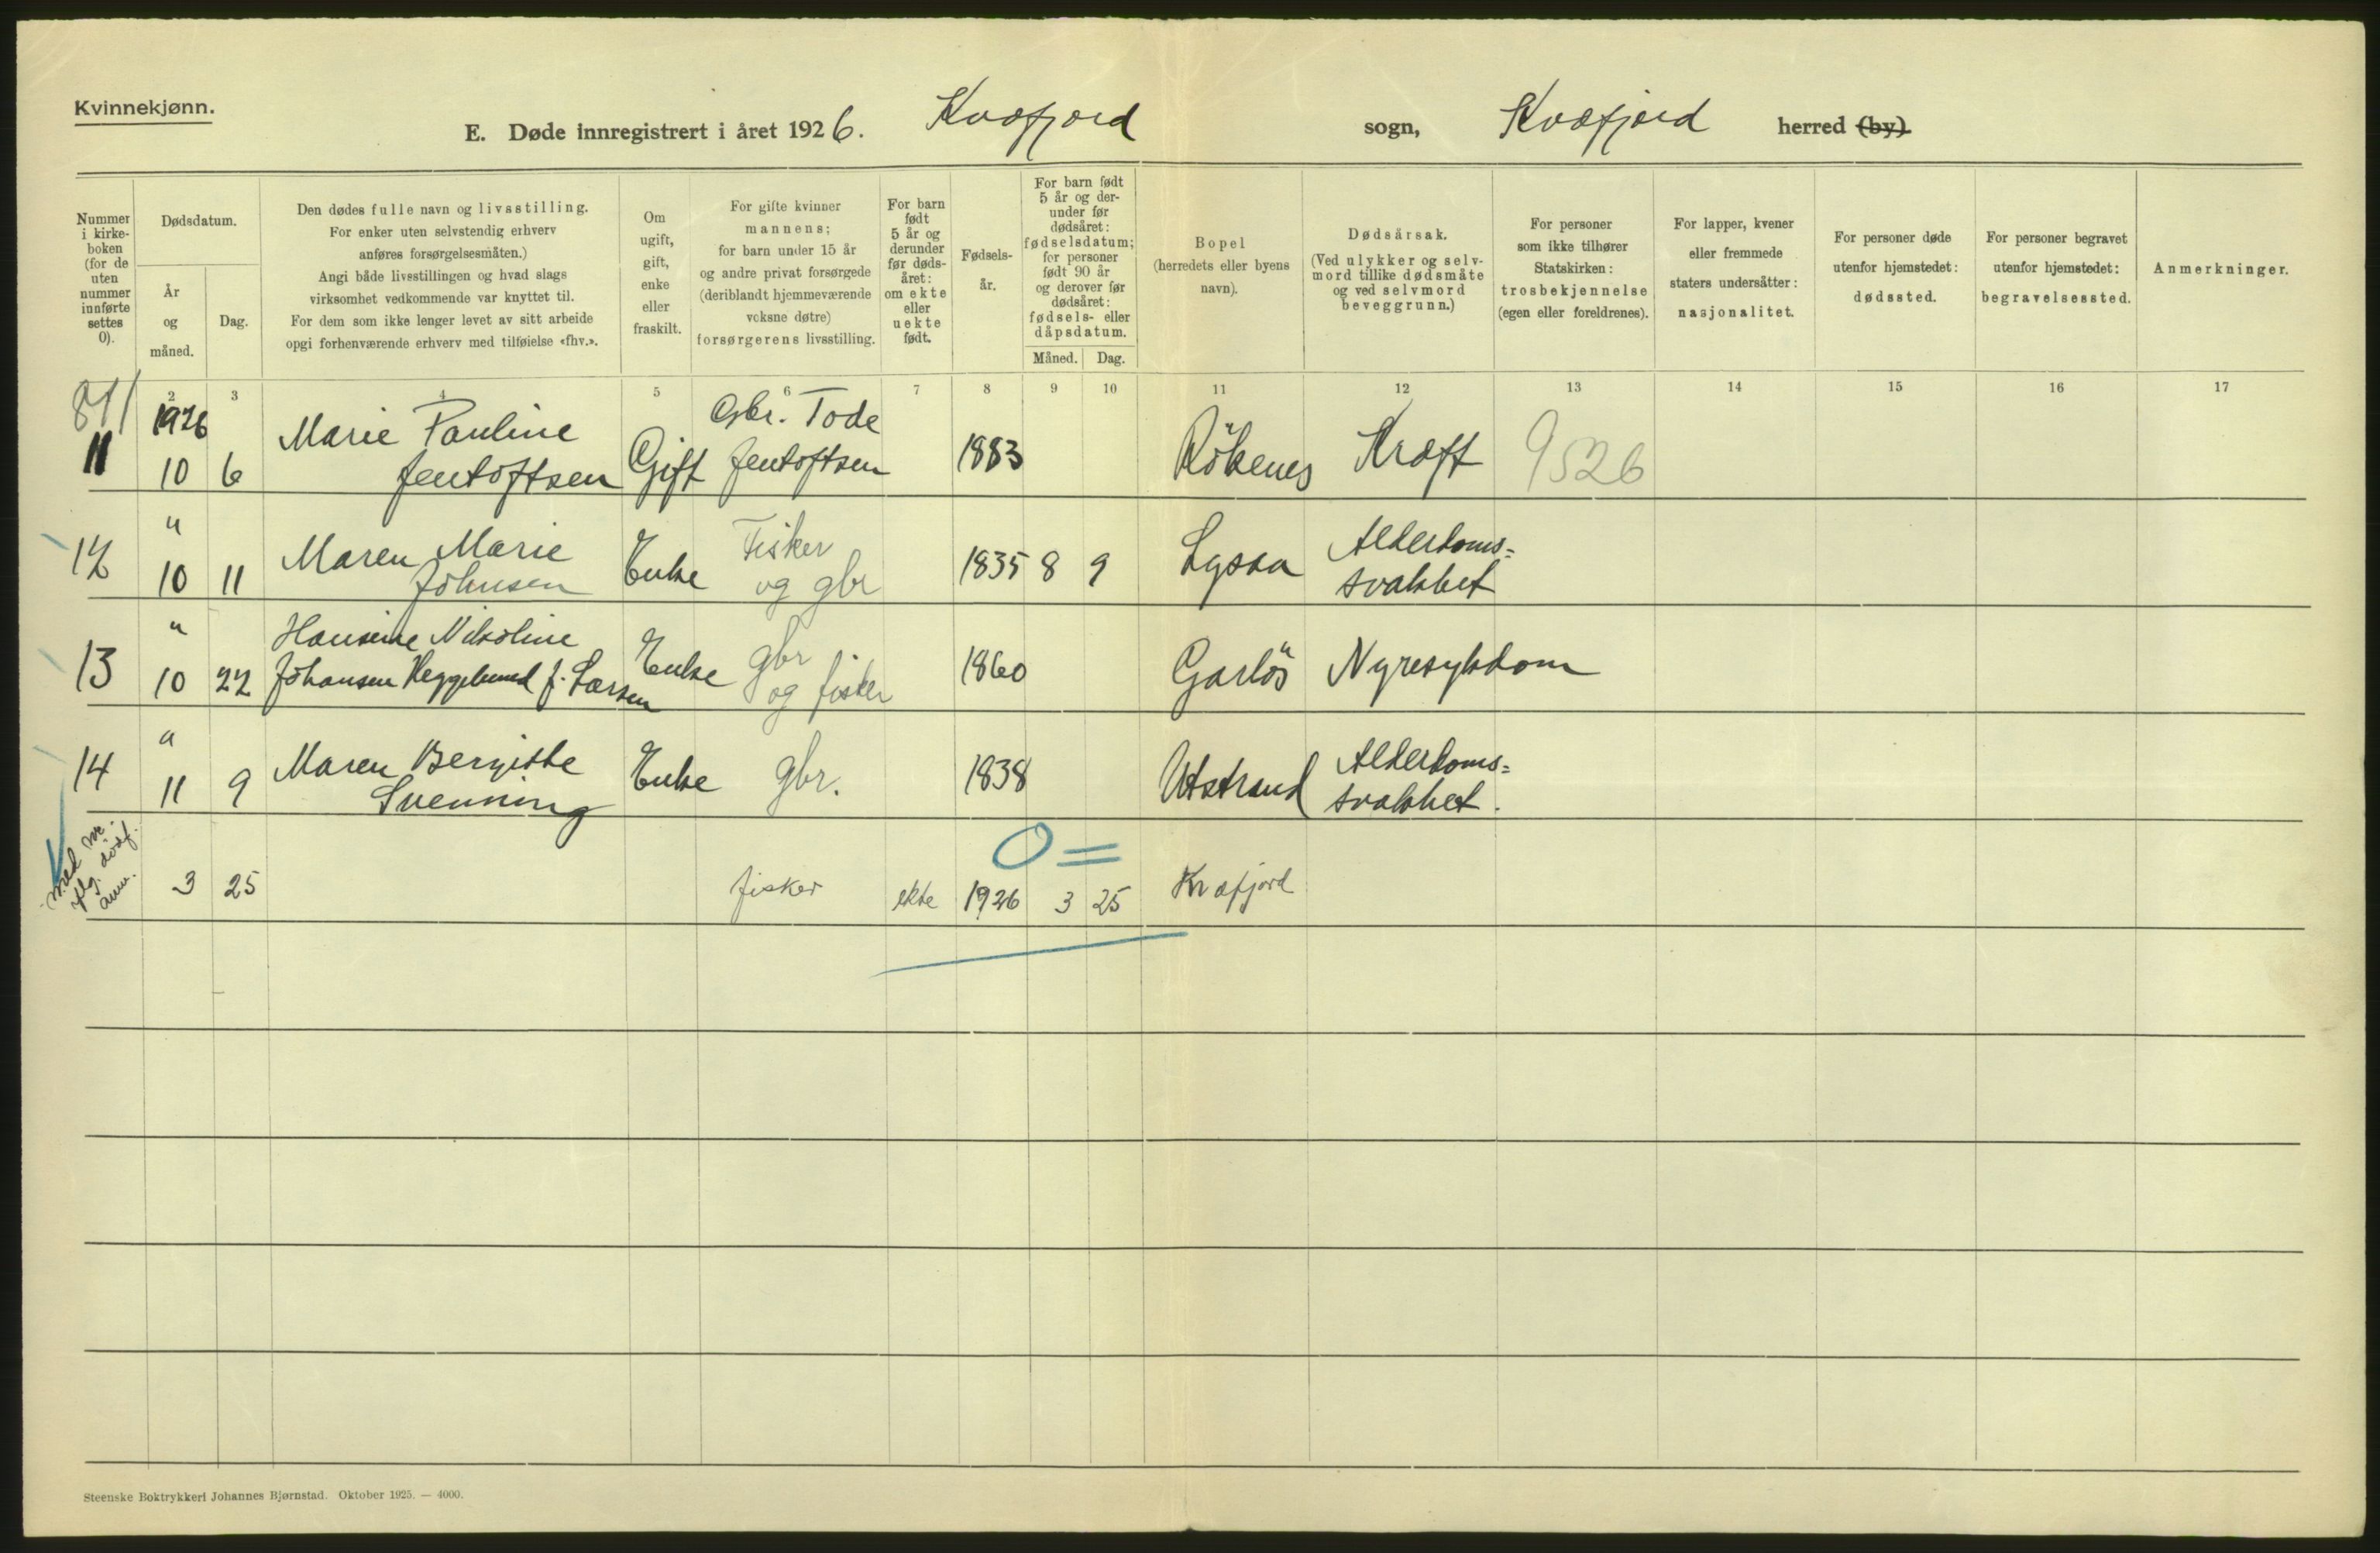 Kvinnekjønn.
E. Døde innregistrert i året 1926. Kvæfjord sogn, Kvæfjord herred (by).
Nummer i kirke- boken (for de uten nummer innførte settes 0).
Dødsdatum.
År og måned.
Dag.
Den dødes fulle navn og livsstilling.
For enker uten selvstendig erhverv
anføres forsørgelsesmåten.)
Angi både livsstillingen og hvad slags
virksomhet vedkommende var knyttet til.
For dem som ikke lenger levet av sitt arbeide
opgi forhenværende erhverv med tilføielse «fhv.».
Om
ugift,
gift,
enke
eller
fraskilt.
For gifte kvinner
mannens;
for barn under 15 år
og andre privat forsørgede
(deriblandt hjemmeværende
voksne døtre)
forsørgerens livsstilling.
For barn
født
5 år og
derunder
før døds-
året:
om ekte
eller
uekte
født.
Fødsels-
år.
For barn født
5 år og der-
under før
dødsåret:
fødselsdatum;
for personer
født 90 år
og derover før
dødsåret:
fødsels- eller
dåpsdatum.
Måned. Dag.
Bopel
(herredets eller byens
navn).
Dødsårsak.
(Ved ulykker og selv-
mord tillike dødsmåte
og ved selvmord
beveggrunn.)
For personer
som ikke tilhører
Statskirken:
trosbekjennelse
(egen eller foreldrenes).
For lapper, kvener
eller fremmede
staters undersåtter:
nasjonalitet.
For personer døde
utenfor hjemstedet:
dødssted.
For personer begravet
utenfor hjemstedet:
begravelsessted.
Anmerkninger.
2 3 4 5 6 7 8 9 10 11 12 13 14 15 16 17
1926 Marie Pauline Gbr. Tode
11 10 6 Jentoftsen Gift Jentoftsen 1883 Røkenes Kræft 9526
" Maren Marie Fisker Alderdoms=
12 10 11 Johnsen Enke og gbr 1835 8 9 svakhet
" Hansine Nikoline gbr
13 10 22 Johansen Heggelund f. Larsen Enke og fisker 1860 Nyresykdom
" Maren Bergitte Alderdoms=
14 11 9 Svenning Enke gbr. 1838 Utstrand svakhet.
0 =
3 25 fisker ekte 1926 3 25 Kvæfjord
Steenske Boktrykkeri Johannes Bjørnstad. Oktober 1925. — 4000.